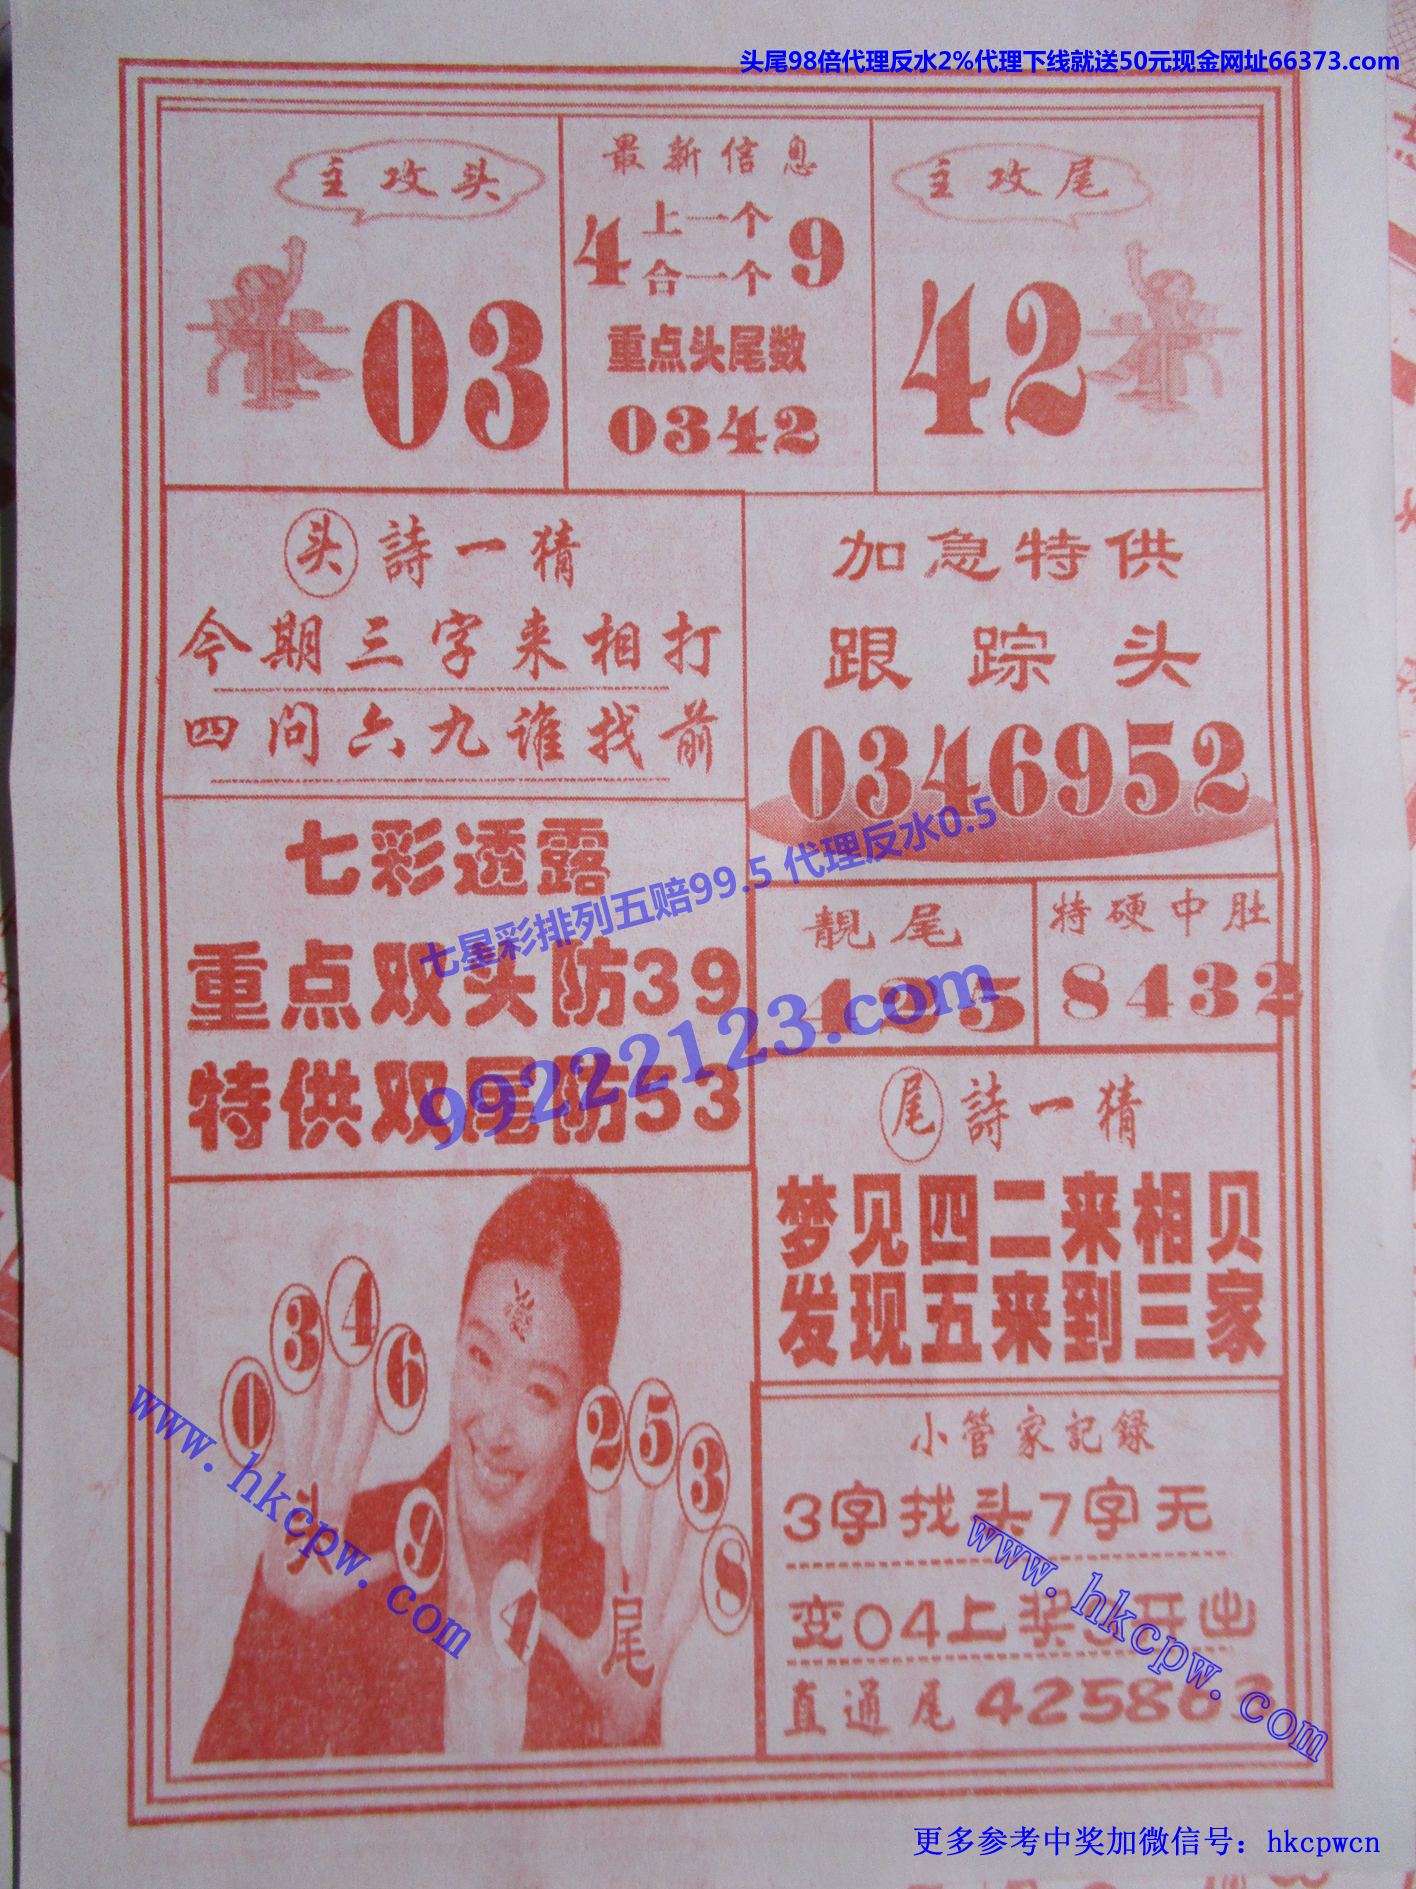 头尾98倍代理反水2%代理下线就送50元现金网址66373.com
主攻头
03
最新信息
4 上一个 9
合一个
重点头尾数
0342
主攻尾
42
头詩一猜
今期三字来相打
四问六九谁找前
加急特供
跟踪头
0346952
七彩透露
重点双头防39
特供双尾防53
七星彩排列五赔99.5 代理反水0.5
99222123.com
靓尾
425
特硬中肚
8432
尾詩一猜
梦见四二来相贝
发现五来到三家
發
0
3
4
6
9
头
2
5
3
8
4
尾
www.hkcpw.com
小管家記録
3字找头7字无
变04上奖5开出
直通尾425863
www.hkcpw.com
更多参考中奖加微信号：hkcpwcn